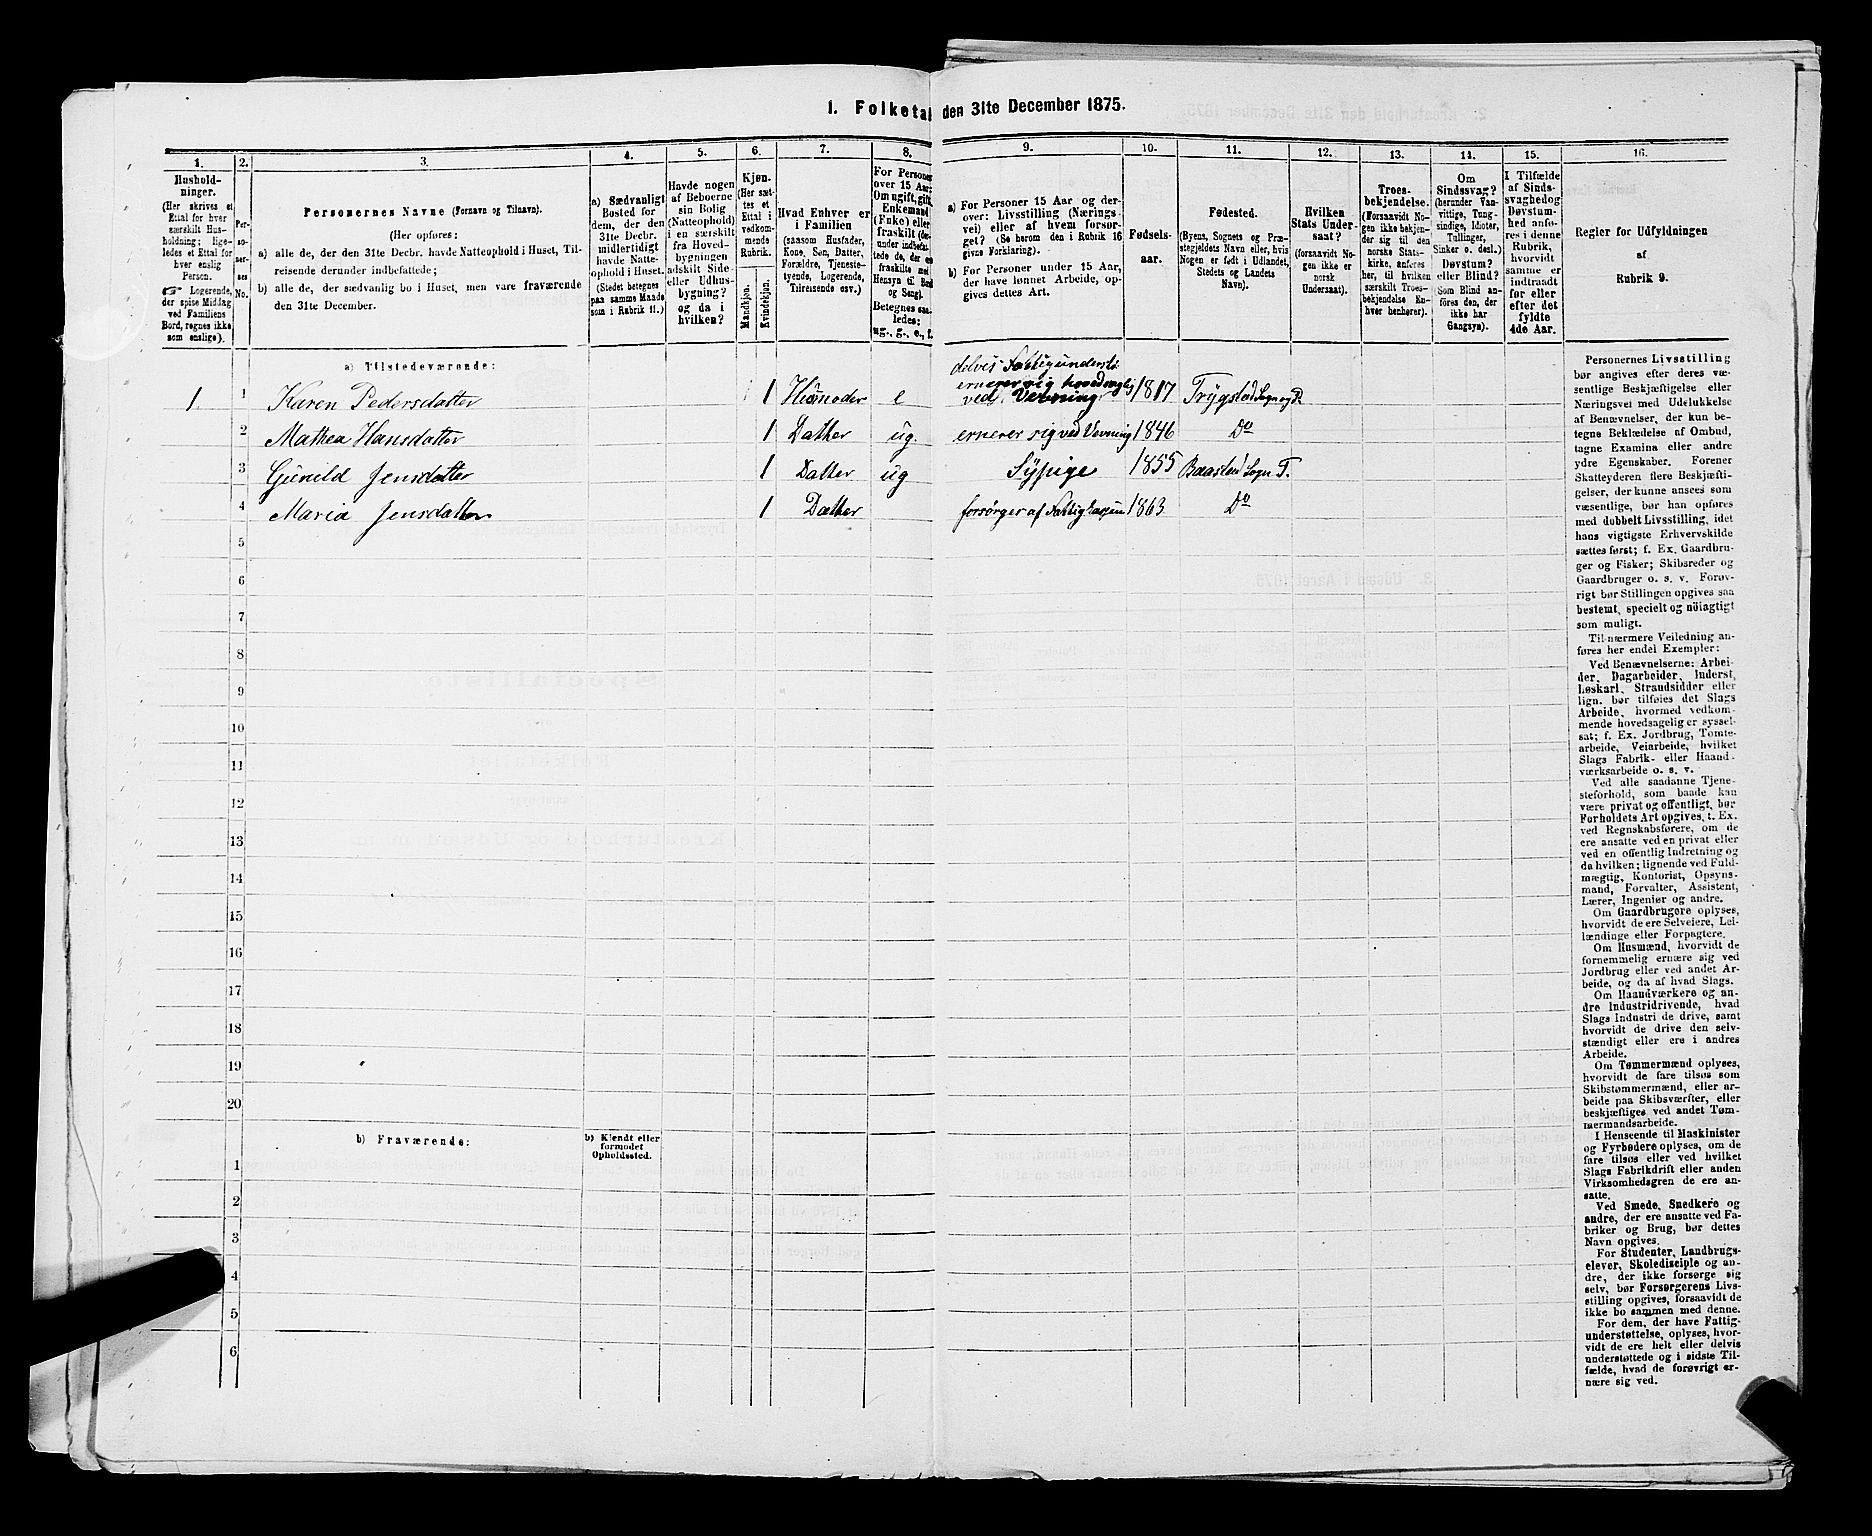 1. Folketal den 31te December 1875.
1. 2. 3. 4. 5. 6. 7. 8. 9. 10. 11. 12. 13. 14. 15. 16.
Hushold-
ninger.
(Her skrives et
Ettal for hver
særskilt Hus-
holdning; lige-
ledes et Ettal for
hver enslig
Person.
Logerende,
der spise Middag
ved Familiens
Bord, regnes ikke
som enslige).
Per-
so-
ner-
nes
No.
Personernes Navne (Fornavn og Tilnavn).
(Her opføres:
a) alle de, der den 31te Decbr. havde Natteophold i Huset, Til-
reisende derunder indbefattede;
b) alle de, der sædvanlig bo i Huset, men vare fraværende
den 31te December.
a) Sædvanligt
Bosted for
dem, der den
31te Decbr.
midlertidigt
havde Natte-
ophold i Huset.
(Stedet betegnes
paa samme Maade
som i Rubrik 11.)
Havde nogen
af Beboerne
sin Bolig
(Natteophold)
i en særskilt
fra Hoved-
bygningen
adskilt Side-
eller Udhus-
bygning?
og da i
hvilken?
Kjøn.
(Her sæt-
tes et
Ettal i
vedkom-
mende
Rubrik.
Mandkjøn.
Kvindekjøn.
Hvad Enhver er
i Familien
(saasom Husfader,
Kone, Søn, Datter,
Forældre, Tjeneste-
tyende, Logerende,
Tilreisende osv.)
For Personer
over 15 Aar:
Om ugift, gift,
Enkemand
(Enke) eller
fraskilt
Betegnes saa-
ledes:
ug., g., e., f.
a) For Personer 15 Aar og der-
over: Livsstilling (Nærings-
vei) eller af hvem forsør-
get? (Se herom den i Rubrik 16
givne Forklaring).
b) For Personer under 15 Aar,
der have lønnet Arbeide, op-
gives dettes Art.
Fødsels-
aar.
Fødested.
(Byens, Sognets og Præ-
stegjeldets Navn eller, hvis
Nogen er født i Udlandet,
Stedets og Landets
Navn).
Hvilken
Stats Under-
saat?
(forsaavidt No-
gen ikke er
norsk
Undersaat).
Troes-
bekjendelse.
(Forsaavidt No-
gen ikke bekjen-
der sig til den
norske Stats-
kirke, anføres
her, til hvilken
særskilt Troes-
bekjendelse En-
hver henhører).
Om
Sindssvag?
(herunder Van-
vittige, Tung-
sindige, Idioter,
Tullinger,
Sinker o. desl.)
Døvstum?
eller Blind?
(Som Blind an-
føres den, der
ikke har
Gangsyn).
I Tilfælde
af Sinds-
svaghed og
Døvstum-
hed anfø-
res i denne
Rubrik,
hvorvidt
samme er
indtraadt
før eller
efter det
fyldte
4de Aar.
Regler for Udfyldningen
af
Rubrik 9.
a) Tilstedeværende:
1. 1 Karen Pedersdatter 1 Husmoder e delvis Fattigunderst: ernerer sig hovedsaglig ved Vevning 1817 Trygstad Sogn og P.
2 Mathea Hansdatter 1 Datter ug. ernerer sig ved Vevning 1846 Do
3 Gunild Jensdatter 1 Datter ug Sypige 1855 Baastad Sogn T.
4 Maria Jensdatter 1 Datter forsørges af 1863 Do
5
6
7
8
9
10
11
12
13
14
15
16
17
18
19
20
b) Fraværende:
b) Kjendt eller
formodet
Opholdssted.
1
2
3
4
5
6
Personernes Livsstilling
bør angives efter deres væ-
sentlige Beskjæftigelse eller
Næringsvei med Udelukkelse
af Benævnelser, der kun be-
tegne Beklædelse af Ombud,
tagne Examina eller andre
ydre Egenskaber. Forener
Skatteyderen flere Beskjæfti-
gelser, der kunne ansees som
væsentlige, bør han opføres
med dobbelt Livsstilling, idet
hans vigtigste Erhvervskilde
sættes først; f. Ex. Gaardbru-
ger og Fisker; Skibsreder og
Gaardbruger o. s. v. Forøv-
rigt bør Stillingen opgives saa
bestemt, specielt og nøiagtigt
som muligt.
Til nærmere Veiledning an-
føres her endel Exempler:
Ved Benævnelserne: Arbei-
der, Dagarbeider, Inderst,
Løskarl, Strandsidder eller
lign. bør tilføies det Slags
Arbeide, hvormed vedkom-
mende hovedsagelig er syssel-
sat; f. Ex. Jordbrug, Tomte-
arbeide, Veiarbeide, hvilket
Slags Fabrik- eller Haand-
værksarbeide o. s. v.
Ved alle saadanne Tjene-
steforhold, som baade kan
være privat og offentligt, bør
Forholdets Art opgives, t. Ex.
ved Regnskabsførere, om de
ere ansatte ved en privat eller
ved en offentlig Indretning og
da hvilken; lignende ved Fuld-
mægtig, Kontorist, Opsyns-
mand, Forvalter, Assistent,
Lærer, Ingeniør og andre.
Om Gaardbrugere oplyses,
hvorvidt de ere Selveiere, Lei-
lændinge eller Forpagtere.
Om Husmænd, hvorvidt de
fornemmelig ernære sig ved
Jordbrug eller ved andet Ar-
beide, og da af hvad Slags.
Om Haandværkere og an-
dre Industridrivende, hvad
Slags Industri de drive, samt
hvorvidt de drive den selv-
stændigt eller ere i andres
Arbeide.
Om Tømmermænd oplyses,
hvorvidt de fare tilsøs som
Skibstømmermænd, eller ar-
beide paa Skibsværfter, eller
beskjæftiges ved andet Tøm-
mermandsarbeide.
I Henseende til Maskinister
og Fyrbødere oplyses, om de
fare tilsøs eller ved hvilket
Slags Fabrikdrift eller anden
Virksomhedsgren de ere an-
satte.
Ved Smede, Snedkere og
andre, der ere ansatte ved Fa-
briker og Brug, bør dettes
Navn opgives.
For Studenter, Landbrugs-
elever, Skoledisciple og an-
dre, der ikke forsørge sig
selv, bør Forsørgerens Livs-
stilling opgives, forsaavidt de
ikke bo sammen med denne.
For dem, der have Fattig-
understøttelse, oplyses, hvor-
vidt de ere helt eller delvis
understøttede og i sidste Til-
fælde, hvad de forøvrigt er-
nære sig ved.